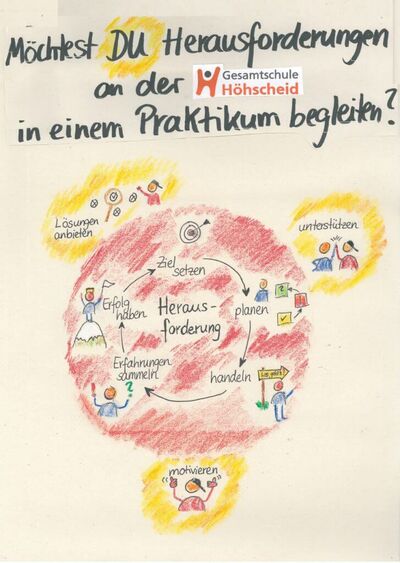 Möchtest DU Herausforderungen
an der Gesamtschule
Höhscheid
in einem Praktikum begleiten?
Lösungen
anbieten
unterstützen
Ziel
setzen
planen
?
Heraus-
forderung
Erfolg
haben
handeln
Los geht's!
Erfahrungen
sammeln
?
motivieren